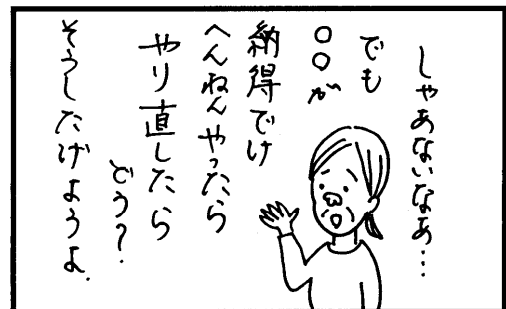 しゃあないなぁ…
でも
○○が
納得でけ
へんねんやったら
やり直したら
どう？
そうしたげようよ.